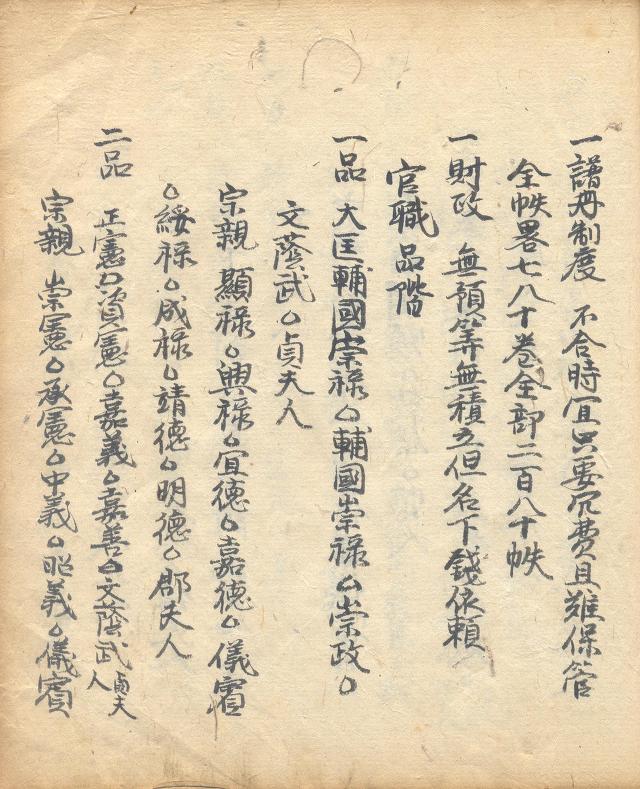 一 譜冊制度 不合時宜只要冗費且難保管
全帙畧七八十巻全部二百八十帙
一 財政 無預筭無積立但名下錢依賴
官職 品階
一品 大匡輔國崇禄○輔國崇禄○崇政○
文蔭武○貞夫人
宗親 顯禄○興禄○宜德○嘉德○儀賓
○綏禄○成禄○靖德○明德○郡夫人
二品 正憲○資憲○嘉義○嘉善○文蔭武貞夫人
宗親 崇憲○承憲○中義○昭義○儀賓